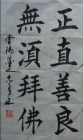 正直善良
無須拜佛